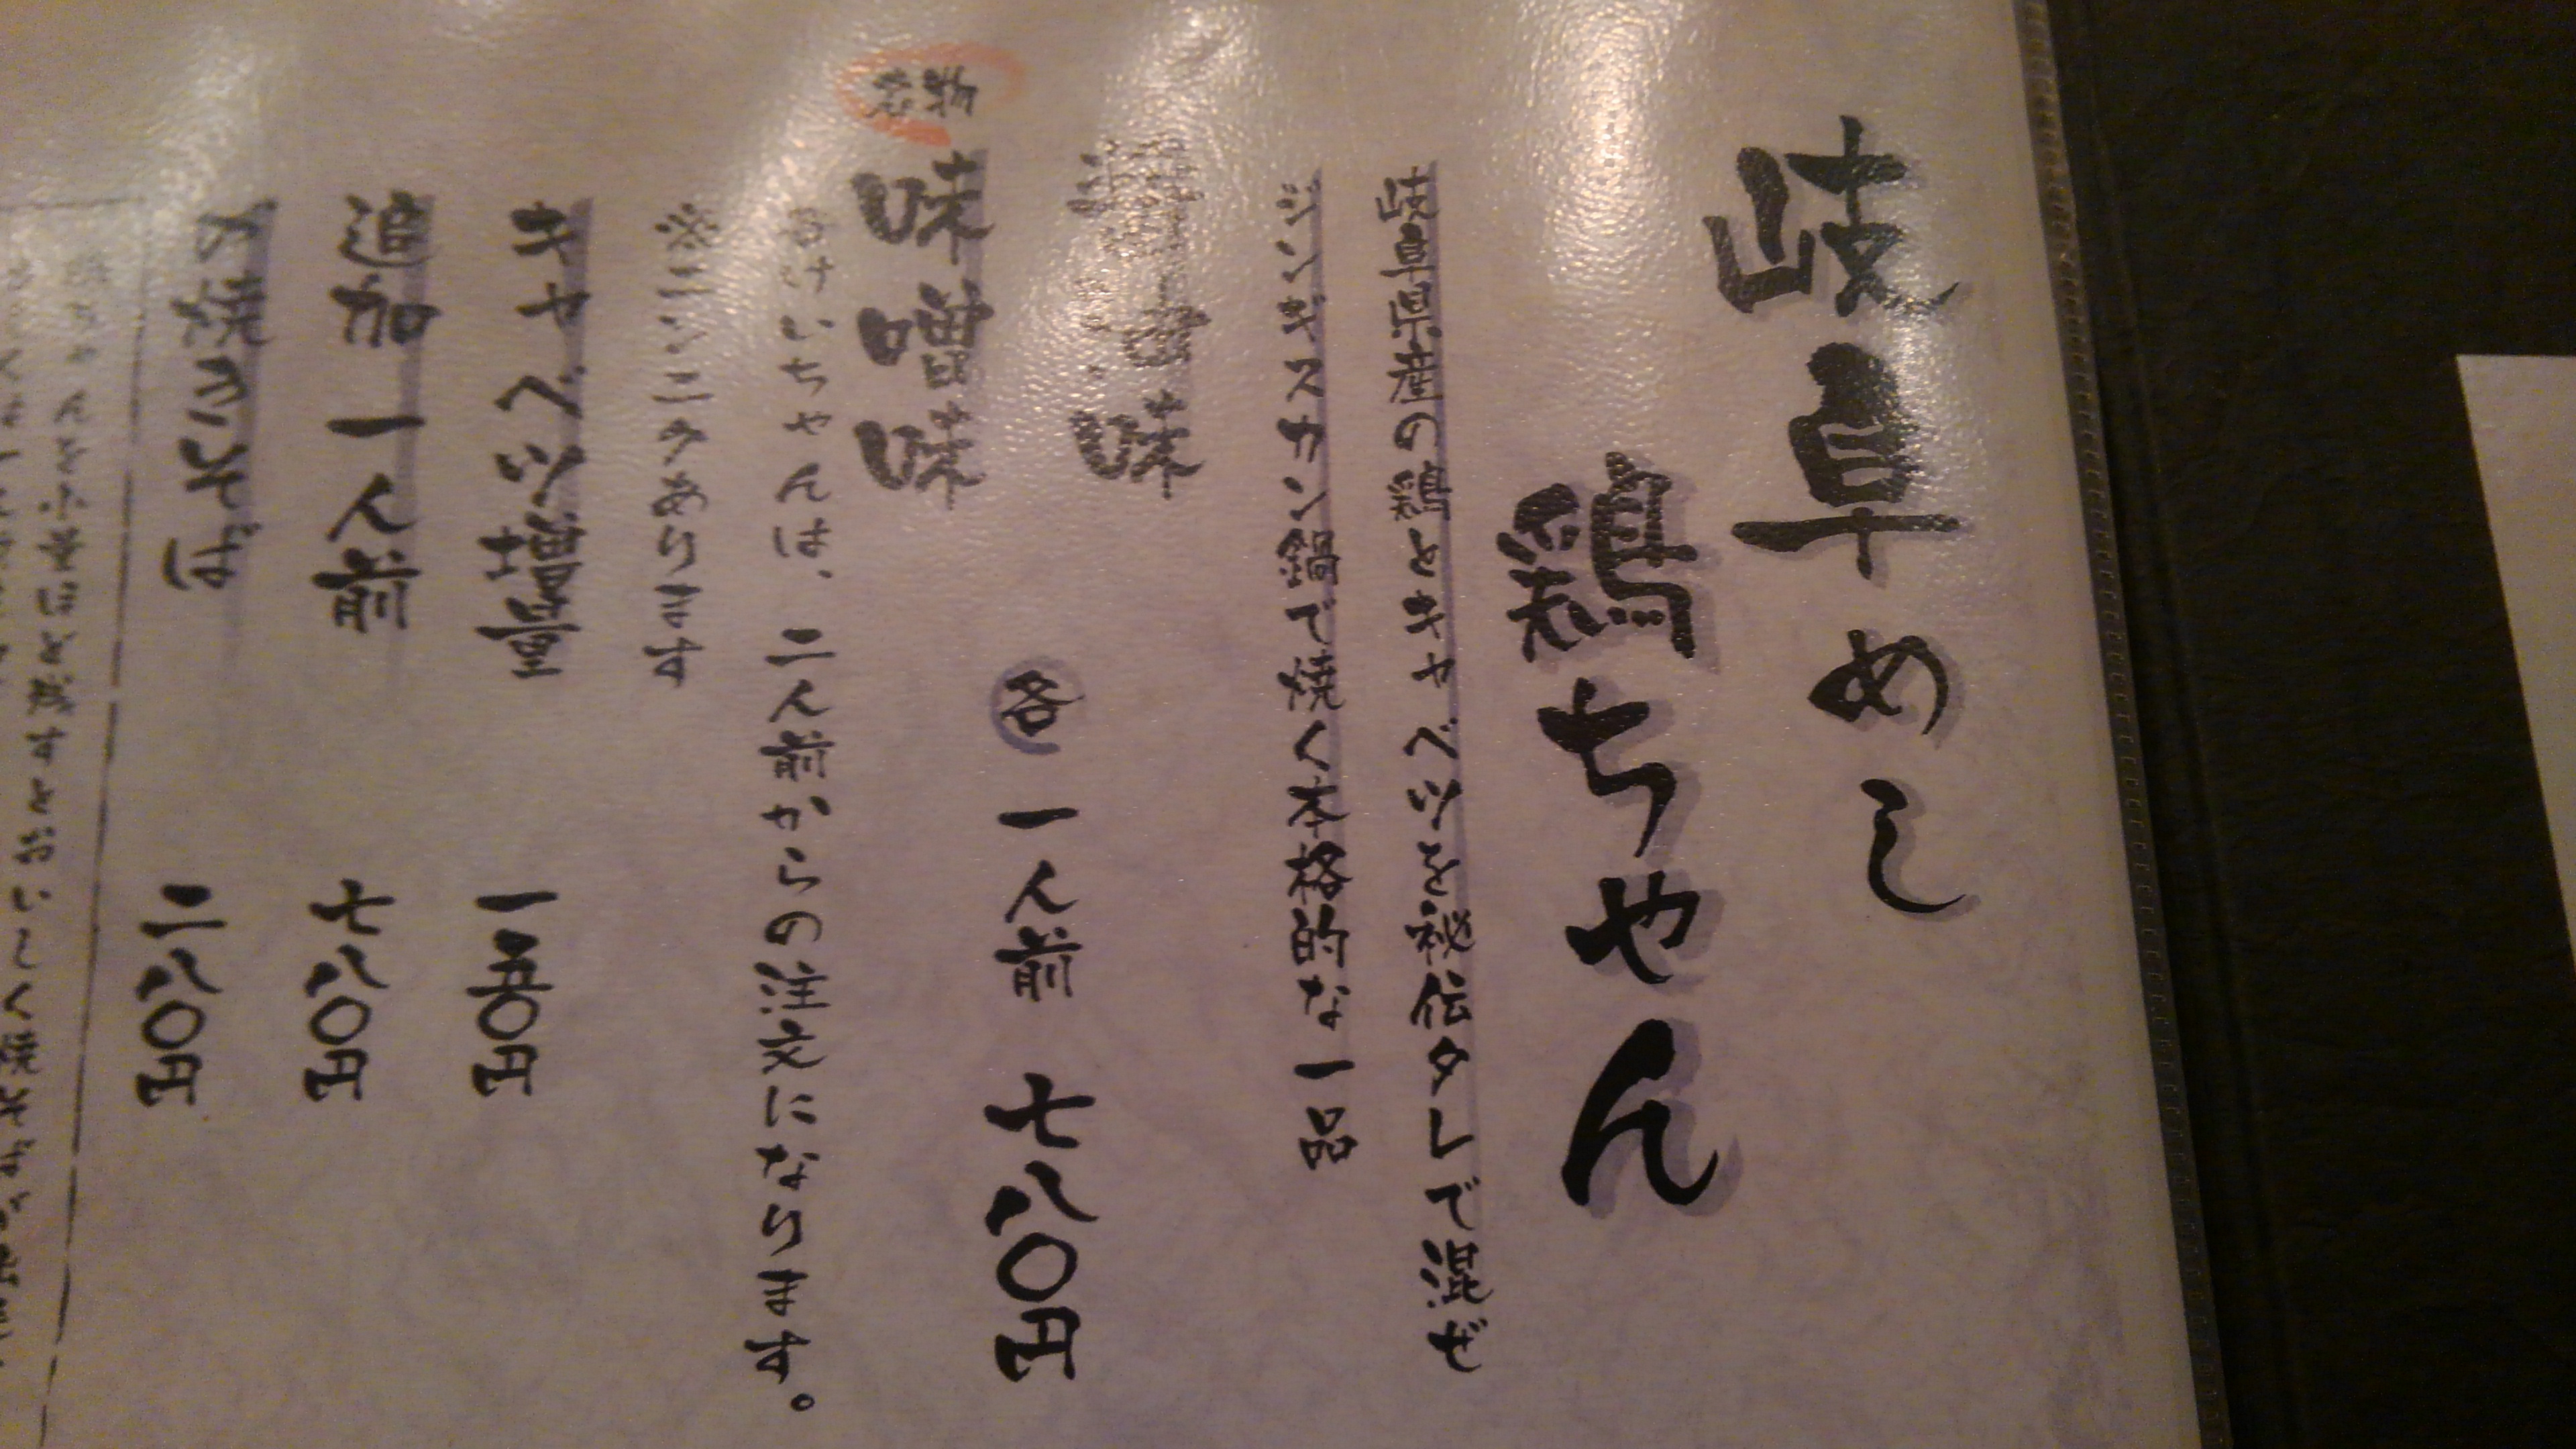 岐阜めし
鶏ちゃん
岐阜県産の鶏とキャベツを秘伝タレで混ぜ
ジンギスカン鍋で焼く本格的な一品
味
名物
味噌味
各 一人前 七八〇円
けいちゃんは、二人前からの注文になります。
※ニンニクあります
キャベツ増量 一五〇円
追加一人前 七八〇円
〆焼きそば 二八〇円